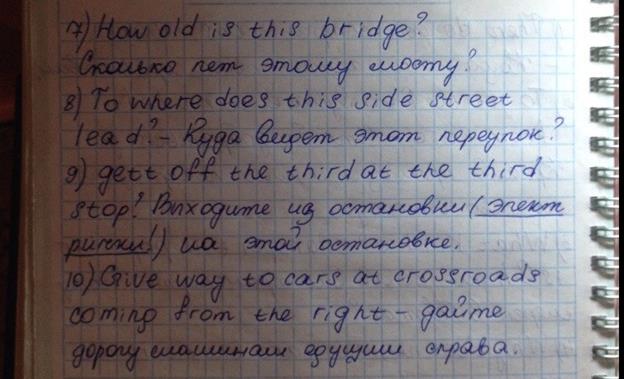 7) How old is this bridge?
Сколько лет этому мосту?
8) To where does this side street
lead? - Куда видет этот переулок?
9) gett off the third at the third
stop! Виходите из остановки (элект
рички!) на этой остановке.
10) Give way to cars at crossroads
coming from the right - дайте
дорогу машинам едущим справа.